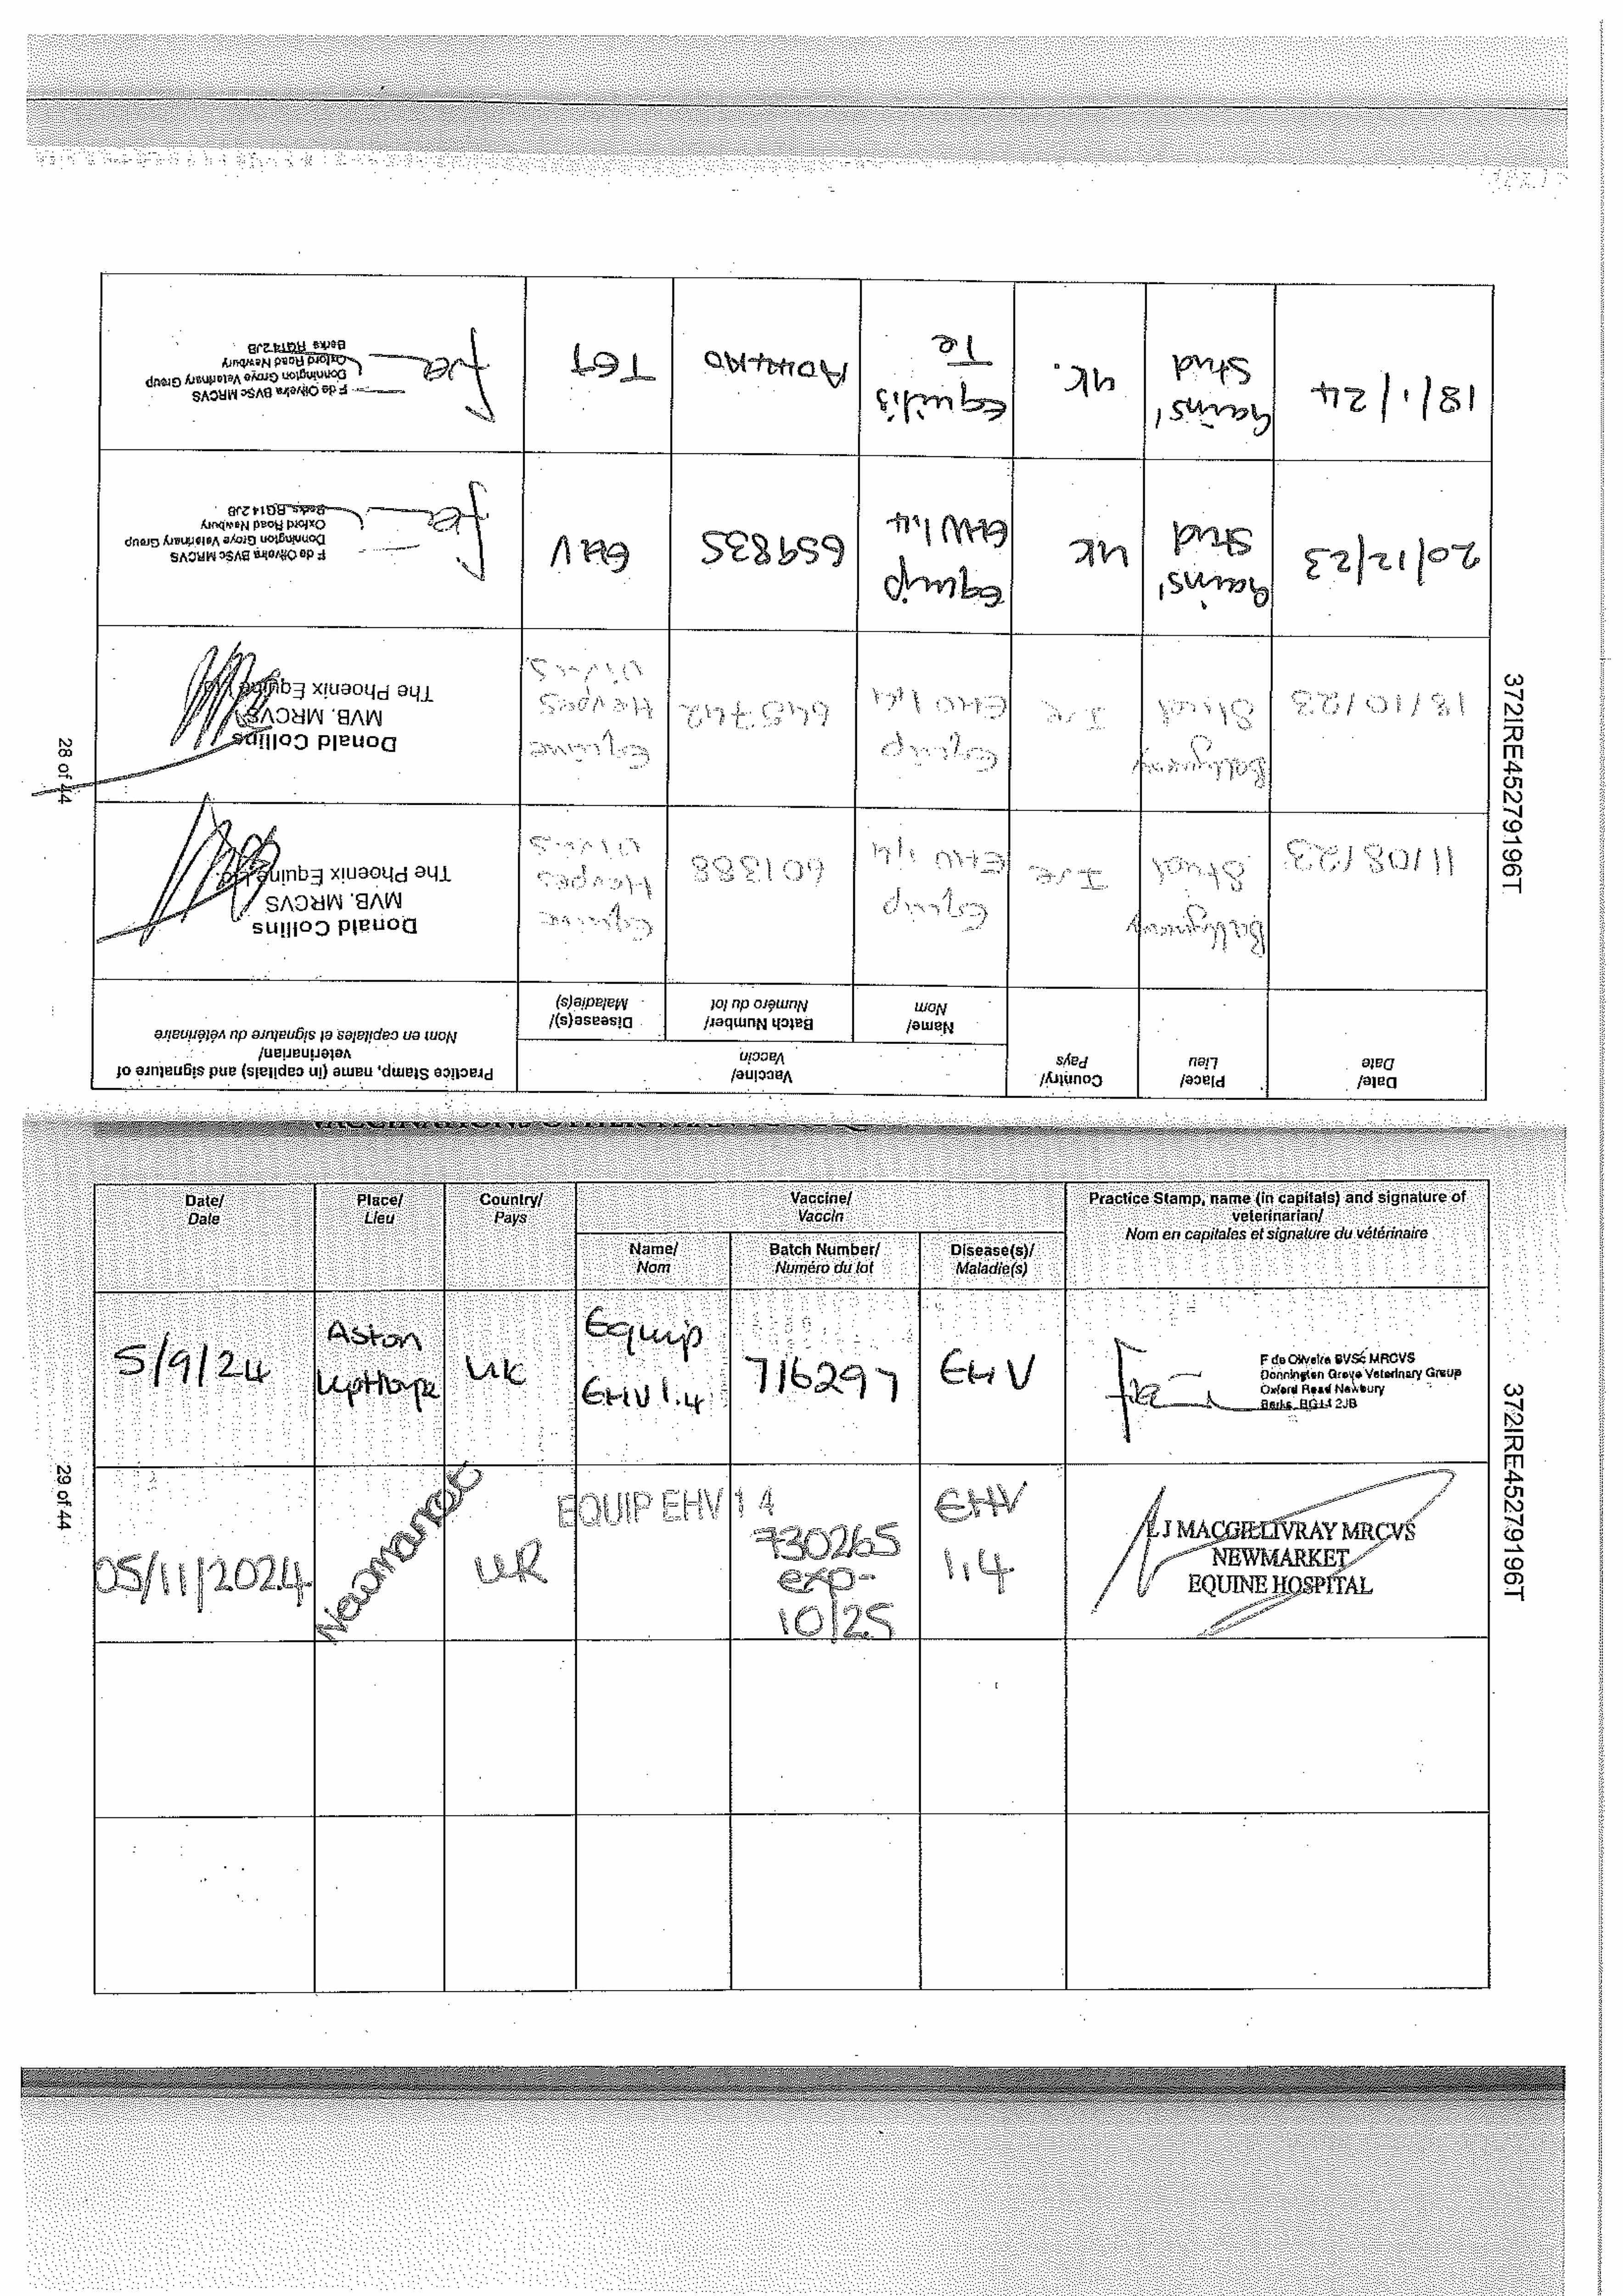 Date/
Date
Place/
Lieu
Country/
Pays
Vaccine/
Vaccin
Name/
Nom
Batch Number/
Numéro du lot
Disease(s)/
Maladie(s)
Practice Stamp, name (in capitals) and signature of
veterinarian/
Nom en capitales et signature du vétérinaire
11/08/23
Stud
Ire
Equip
EHV 1,4
601388
Equine
Herpes
Virus
Donald Collins
MVB. MRCVS
The Phoenix Equine
18/10/23
Stud
Ire
Equip
EHV 1,4
645742
Equine
Herpes
Virus
Donald Collins
MVB. MRCVS
The Phoenix Equine
20/12/23
Stud
UK
Equip
EHV 1.4
659835
EHV
F de Oliveira BVSc MRCVS
Donnington Grove Veterinary Group
Oxford Road Newbury
Berks RG14 2JB
18/1/24
Stud
UK.
Equilis
Te
TET
F de Oliveira BVSc MRCVS
Donnington Grove Veterinary Group
Oxford Road Newbury
Berks RG14 2JB
28 of 44
372IRE45279196T
Date/
Date
Place/
Lieu
Country/
Pays
Vaccine/
Vaccin
Name/
Nom
Batch Number/
Numéro du lot
Disease(s)/
Maladie(s)
Practice Stamp, name (in capitals) and signature of
veterinarian/
Nom en capitales et signature du vétérinaire
5/9/24
Aston
UK
Equip
EHV 1.4
716297
EHV
F de Oliveira BVSc MRCVS
Donnington Grove Veterinary Group
Oxford Road Newbury
Berks RG14 2JB
05/11/2024
Newmarket
UK
EQUIP EHV 1 4
730265
exp-
10/25
EHV
1,4
LJ MACGILLIVRAY MRCVS
NEWMARKET
EQUINE HOSPITAL
29 of 44
372IRE45279196T